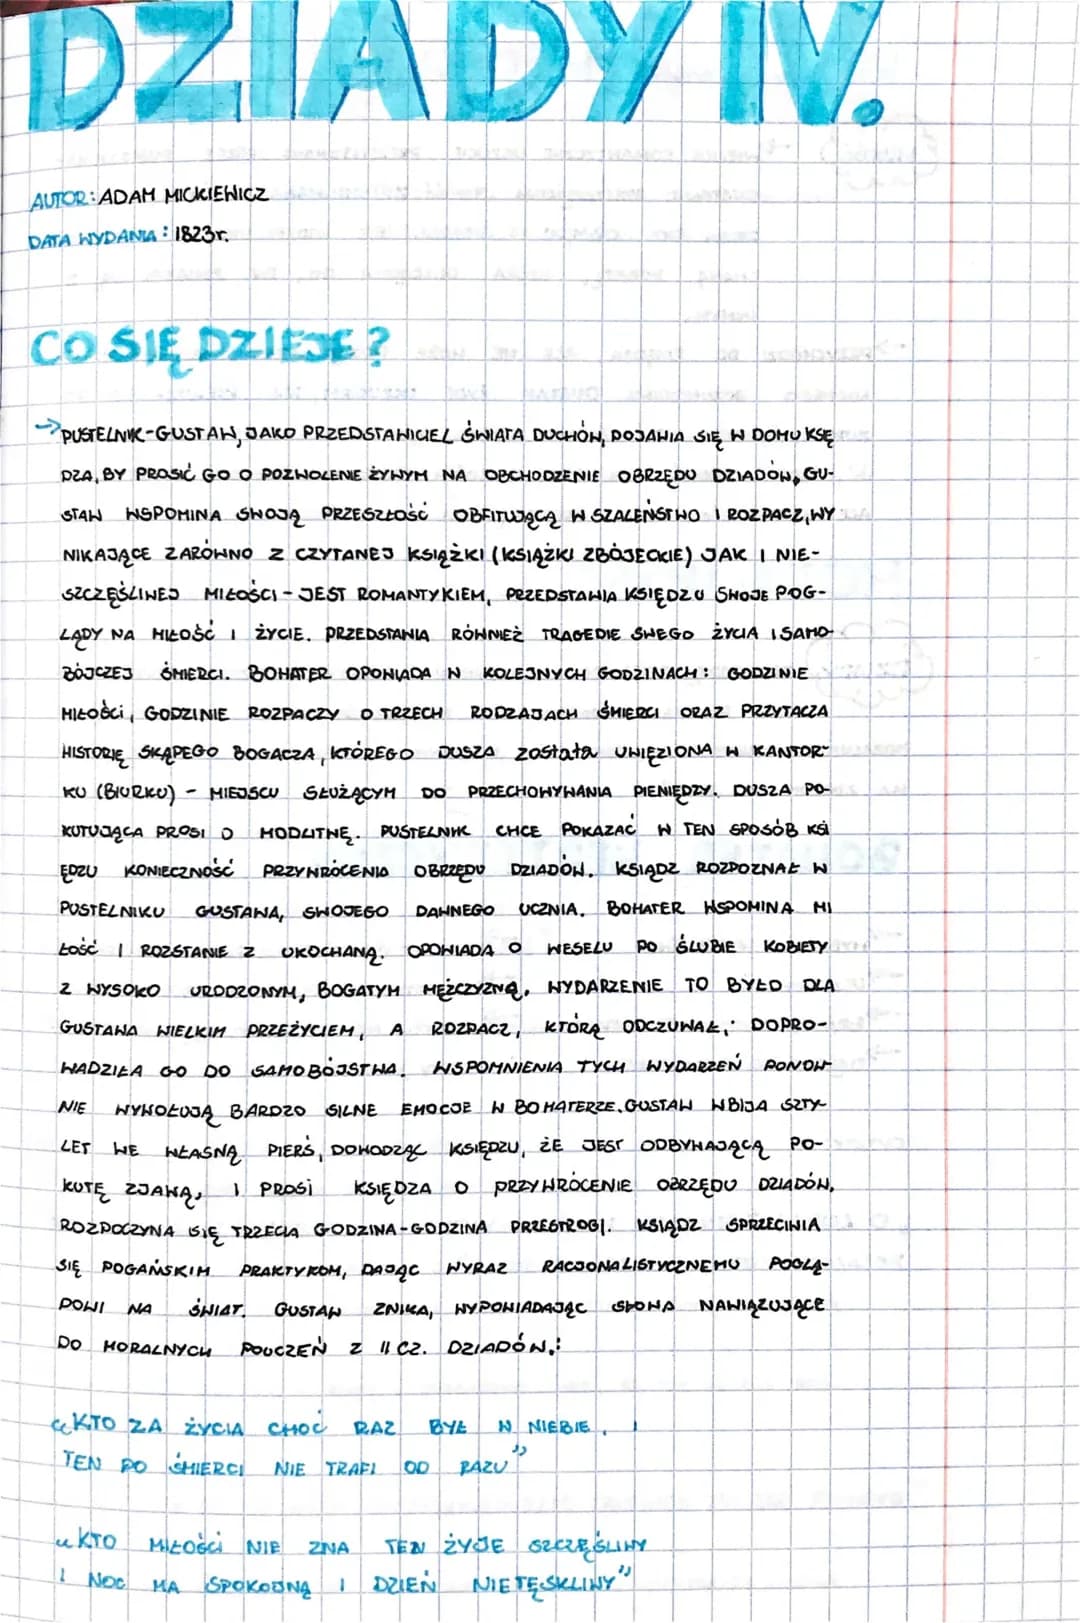 DZIADY IV.
AUTOR: ADAM MICKIEWICZ
DATA WYDANIA: 1823r.
CO SIĘ DZIEJE?
→PUSTELNIK-GUSTAW, JAKO PRZEDSTAWICIEL ŚWIATA DUCHÓW, POJAWIA SIĘ W DOMU KSĘ
DZA, BY PROSIĆ GO O POZWOLENIE ŻYWYM NA OBCHODZENIE OBRZĘDU DZIADÓW, GU-
STAW WSPOMINA SWOJĄ PRZESZŁOŚĆ OBFITUJĄCĄ W SZALEŃSTWO I ROZPACZ, WY
NIKAJĄCE ZARÓWNO Z CZYTANEJ KSIĄŻKI (KSIĄŻKI ZBÓJECKIE) JAK I NIE-
SZCZĘŚLIWEJ MIŁOŚCI - JEST ROMANTYKIEM, PRZEDSTAWIA KSIĘDZU SWOJE POG-
LĄDY NA MIŁOŚĆ I ŻYCIE. PRZEDSTAWIA RÓWNIEŻ TRAGEDIE SWEGO ŻYCIA I SAMO-
BÓJCZEJ ŚMIERCI. BOHATER OPOWIADA W KOLEJNYCH GODZINACH: GODZINIE
MIŁOŚCI, GODZINIE ROZPACZY O TRZECH RODZAJACH ŚMIERCI ORAZ PRZYTACZA
HISTORIĘ SKĄPEGO BOGACZA, KTÓREGO DUSZA została UWIĘZIONA W KANTOR-
KU (BIURKU) - MIEJSCU SŁUŻĄCYM DO PRZECHOWYWANIA PIENIĘDZY. DUSZA PO-
KUTUJĄCA PROSI O MODLITWĘ. PUSTELNIK CHCE POKAZAĆ W TEN SPOSÓB KSI
ĘDZU KONIECZNOŚĆ PRZYWRÓCENIA OBRZĘDU DZIADÓW. KSIĄDZ ROZPOZNAŁ W
PUSTELNIKU GUSTAWA, SWOJEGO DAWNEGO UCZNIA. BOHATER WSPOMINA MI
ŁOŚĆ I ROZSTANIE Z UKOCHANĄ. OPOWIADA O WESELU PO ŚLUBIE KOBIETY
Z WYSOKO URODZONYM, BOGATYM MĘŻCZYZNĄ. WYDARZENIE TO BYŁO DLA
GUSTAWA WIELKIM PRZEŻYCIEM, A ROZPACZ, KTÓRĄ ODCZUWAŁ, DOPRO-
WADZIŁA GO DO SAMOBÓJSTWA. WSPOMNIENIA TYCH WYDARZEŃ PONOW
NIE WYWOŁUJĄ BARDZO SILNE EMOCJE W BOHATERZE. GUSTAW WBIJA SZTY-
LET WE WŁASNĄ PIERŚ, DOWODZĄC KSIĘDZU, ŻE JEST ODBYWAJĄCĄ PO-
KUTĘ ZJAWĄ, I PROSI KSIĘDZA O PRZYWRÓCENIE OBRZĘDU DZIADÓW,
ROZPOCZYNA SIĘ TRZECIA GODZINA-GODZINA PRZESTROGI. KSIĄDZ SPRZECIWIA
SIĘ POGAŃSKIM PRAKTYKOM, DAJĄC WYRAZ RACJONALISTYCZNEMU POGLĄ-
DOWI NA ŚWIAT. GUSTAW ZNIKA, WYPOWIADAJĄC SŁOWA NAWIĄZUJĄCE
DO MORALNYCH POUCZEŃ Z II CZ. DZIADÓW.:
"KTO ZA ŻYCIA CHOĆ RAZ BYŁ W NIEBIE, I
TEN PO ŚMIERCI NIE TRAFI OD RAZU"
"KTO MIŁOŚCI NIE ZNA TEN ŻYJE SZCZĘŚLIWY
I NOC MA SPOKOJNĄ I DZIEŃ NIETĘSKLIWY"